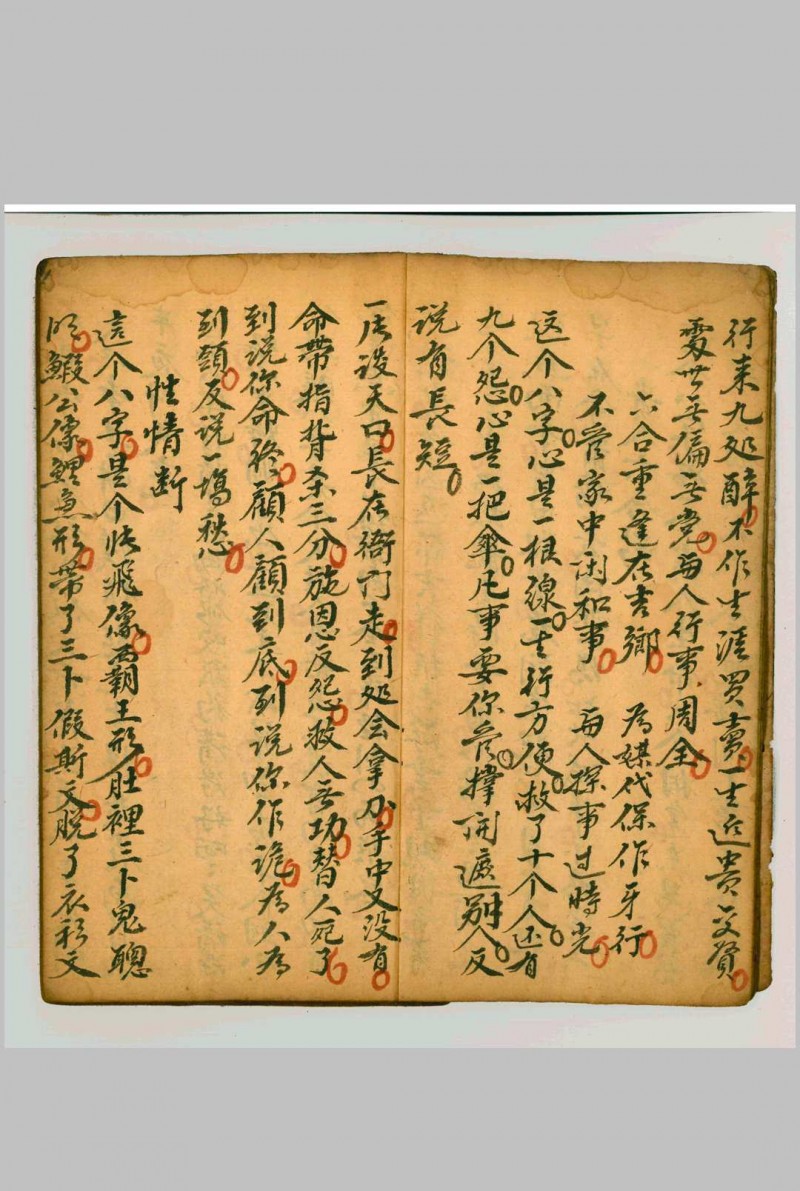 行来九处醉不作生涯買賣一生近貴交賢
處世無偏無党與人行事周全
六合重逢在吉鄉 為媒代保作牙行
不管家中闲和事 與人探事过時光
这个八字心是一根線一生行方便救了十个人还有
九个怨心是一把傘凡事要你管撑開遮別人反
说有長短
一张没天口長在衙門走到处会拿刀手中又没有
命帶指背杀三分施恩反怨救人無功替人死了
到说你命终顧人顧到底到说你作诡為人為
到頸反说一塲愁
性情断
這个八字是个张飛像霸王形肚裡三卜鬼聰
明鰕公像鯉魚形带了三卜假斯文脱了衣衫文